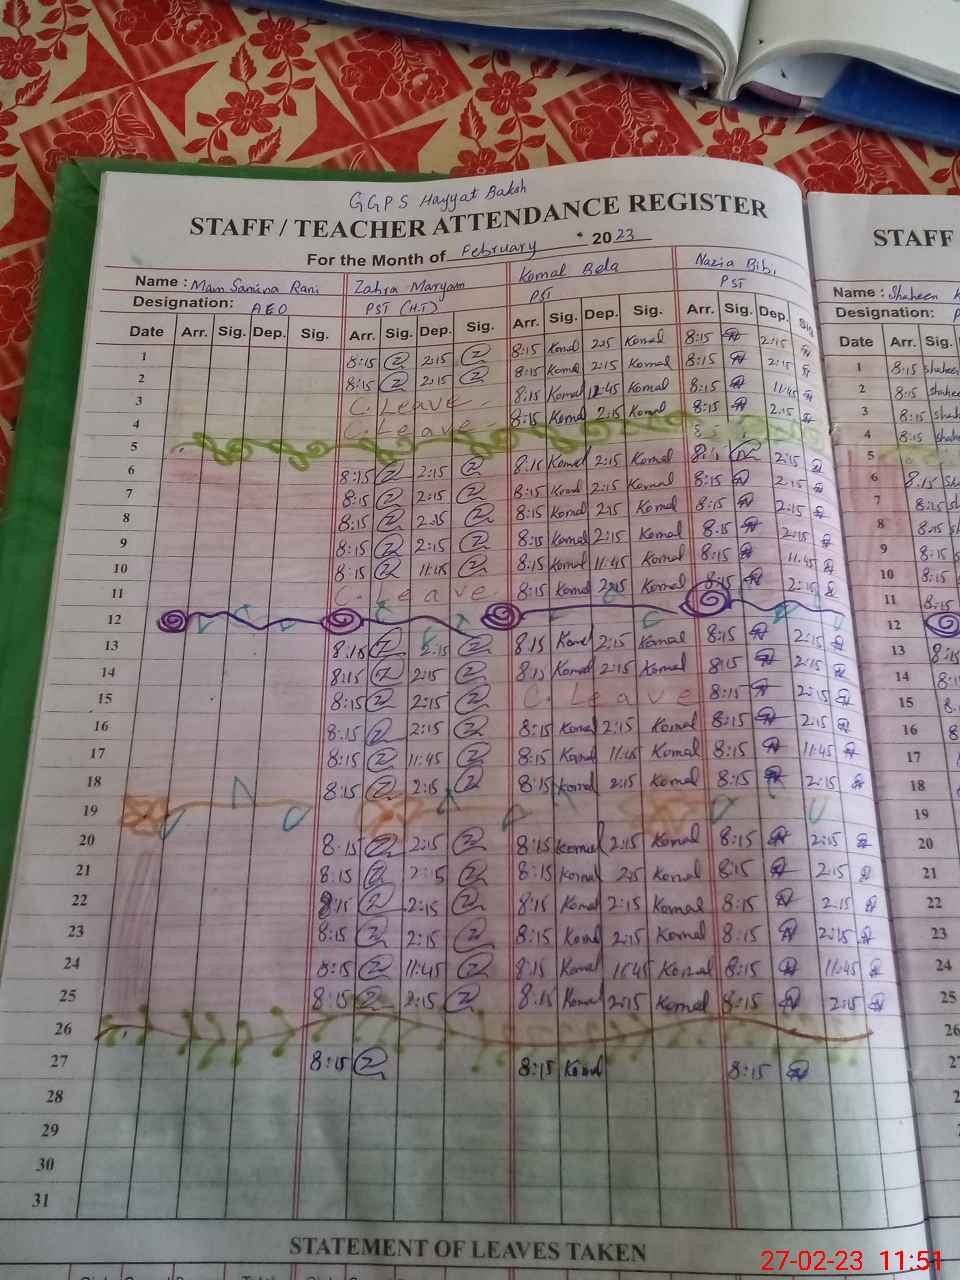 GGPS Hayyat Baksh
STAFF / TEACHER ATTENDANCE REGISTER
STAFF
For the Month of February 2023
Name : Mam Samina Rani Zahra Maryam Komal Bela Nazia Bibi
Name : Shaheen
Designation: AEO PST (H.T) PST PST
Designation:
Date Arr. Sig. Dep. Sig. Arr. Sig. Dep. Sig. Arr. Sig. Dep. Sig. Arr. Sig. Dep. Sig.
Date Arr. Sig.
1 8:15 2:15 8:15 Komal 2:15 Komal 8:15 2:15
1 8:15 Shaheen
2 8:15 2:15 8:15 Komal 2:15 Komal 8:15 2:15
2 8:15
3 C. Leave 8:15 Komal 11:45 Komal 8:15 11:45
3 8:15
4 C. Leave 8:15 Komal 2:15 Komal 8:15 2:15
4 8:15
5
5
6 8:15 2:15 8:15 Komal 2:15 Komal 2:15
6 8:15
7 8:15 2:15 8:15 Komal 2:15 Komal 8:15 2:15
7 8:15
8 8:15 2:15 8:15 Komal 2:15 Komal 8:15 2:15
8 8:15
9 8:15 2:15 8:15 Komal 2:15 Komal 8:15 2:15
9 8:15
10 8:15 11:45 8:15 Komal 11:45 Komal 8:15 11:45
10 8:15
11 C. Leave 8:15 Komal 2:15 Komal 8:15 2:15
11 8:15
12
12
13 8:15 2:15 8:15 Komal 2:15 Komal 8:15 2:15
13 8:15
14 8:15 2:15 8:15 Komal 2:15 Komal 8:15 2:15
14
15 8:15 2:15 C. Leave 8:15 2:15
15
16 8:15 2:15 8:15 Komal 2:15 Komal 8:15 2:15
16
17 8:15 11:45 8:15 Komal 11:45 Komal 8:15 11:45
17
18 8:15 2:15 8:15 Komal 2:15 Komal 8:15 2:15
18
19
19
20 8:15 2:15 8:15 Komal 2:15 Komal 8:15 2:15
20
21 8:15 2:15 8:15 Komal 2:15 Komal 8:15 2:15
21
22 8:15 2:15 8:15 Komal 2:15 Komal 8:15 2:15
22
23 8:15 2:15 8:15 Komal 2:15 Komal 8:15 2:15
23
24 8:15 11:45 8:15 Komal 11:45 Komal 8:15 11:45
24
25 8:15 2:15 8:15 Komal 2:15 Komal 8:15 2:15
25
26
26
27 8:15 8:15 Komal 8:15
28
29
30
31
STATEMENT OF LEAVES TAKEN
27-02-23 11:51